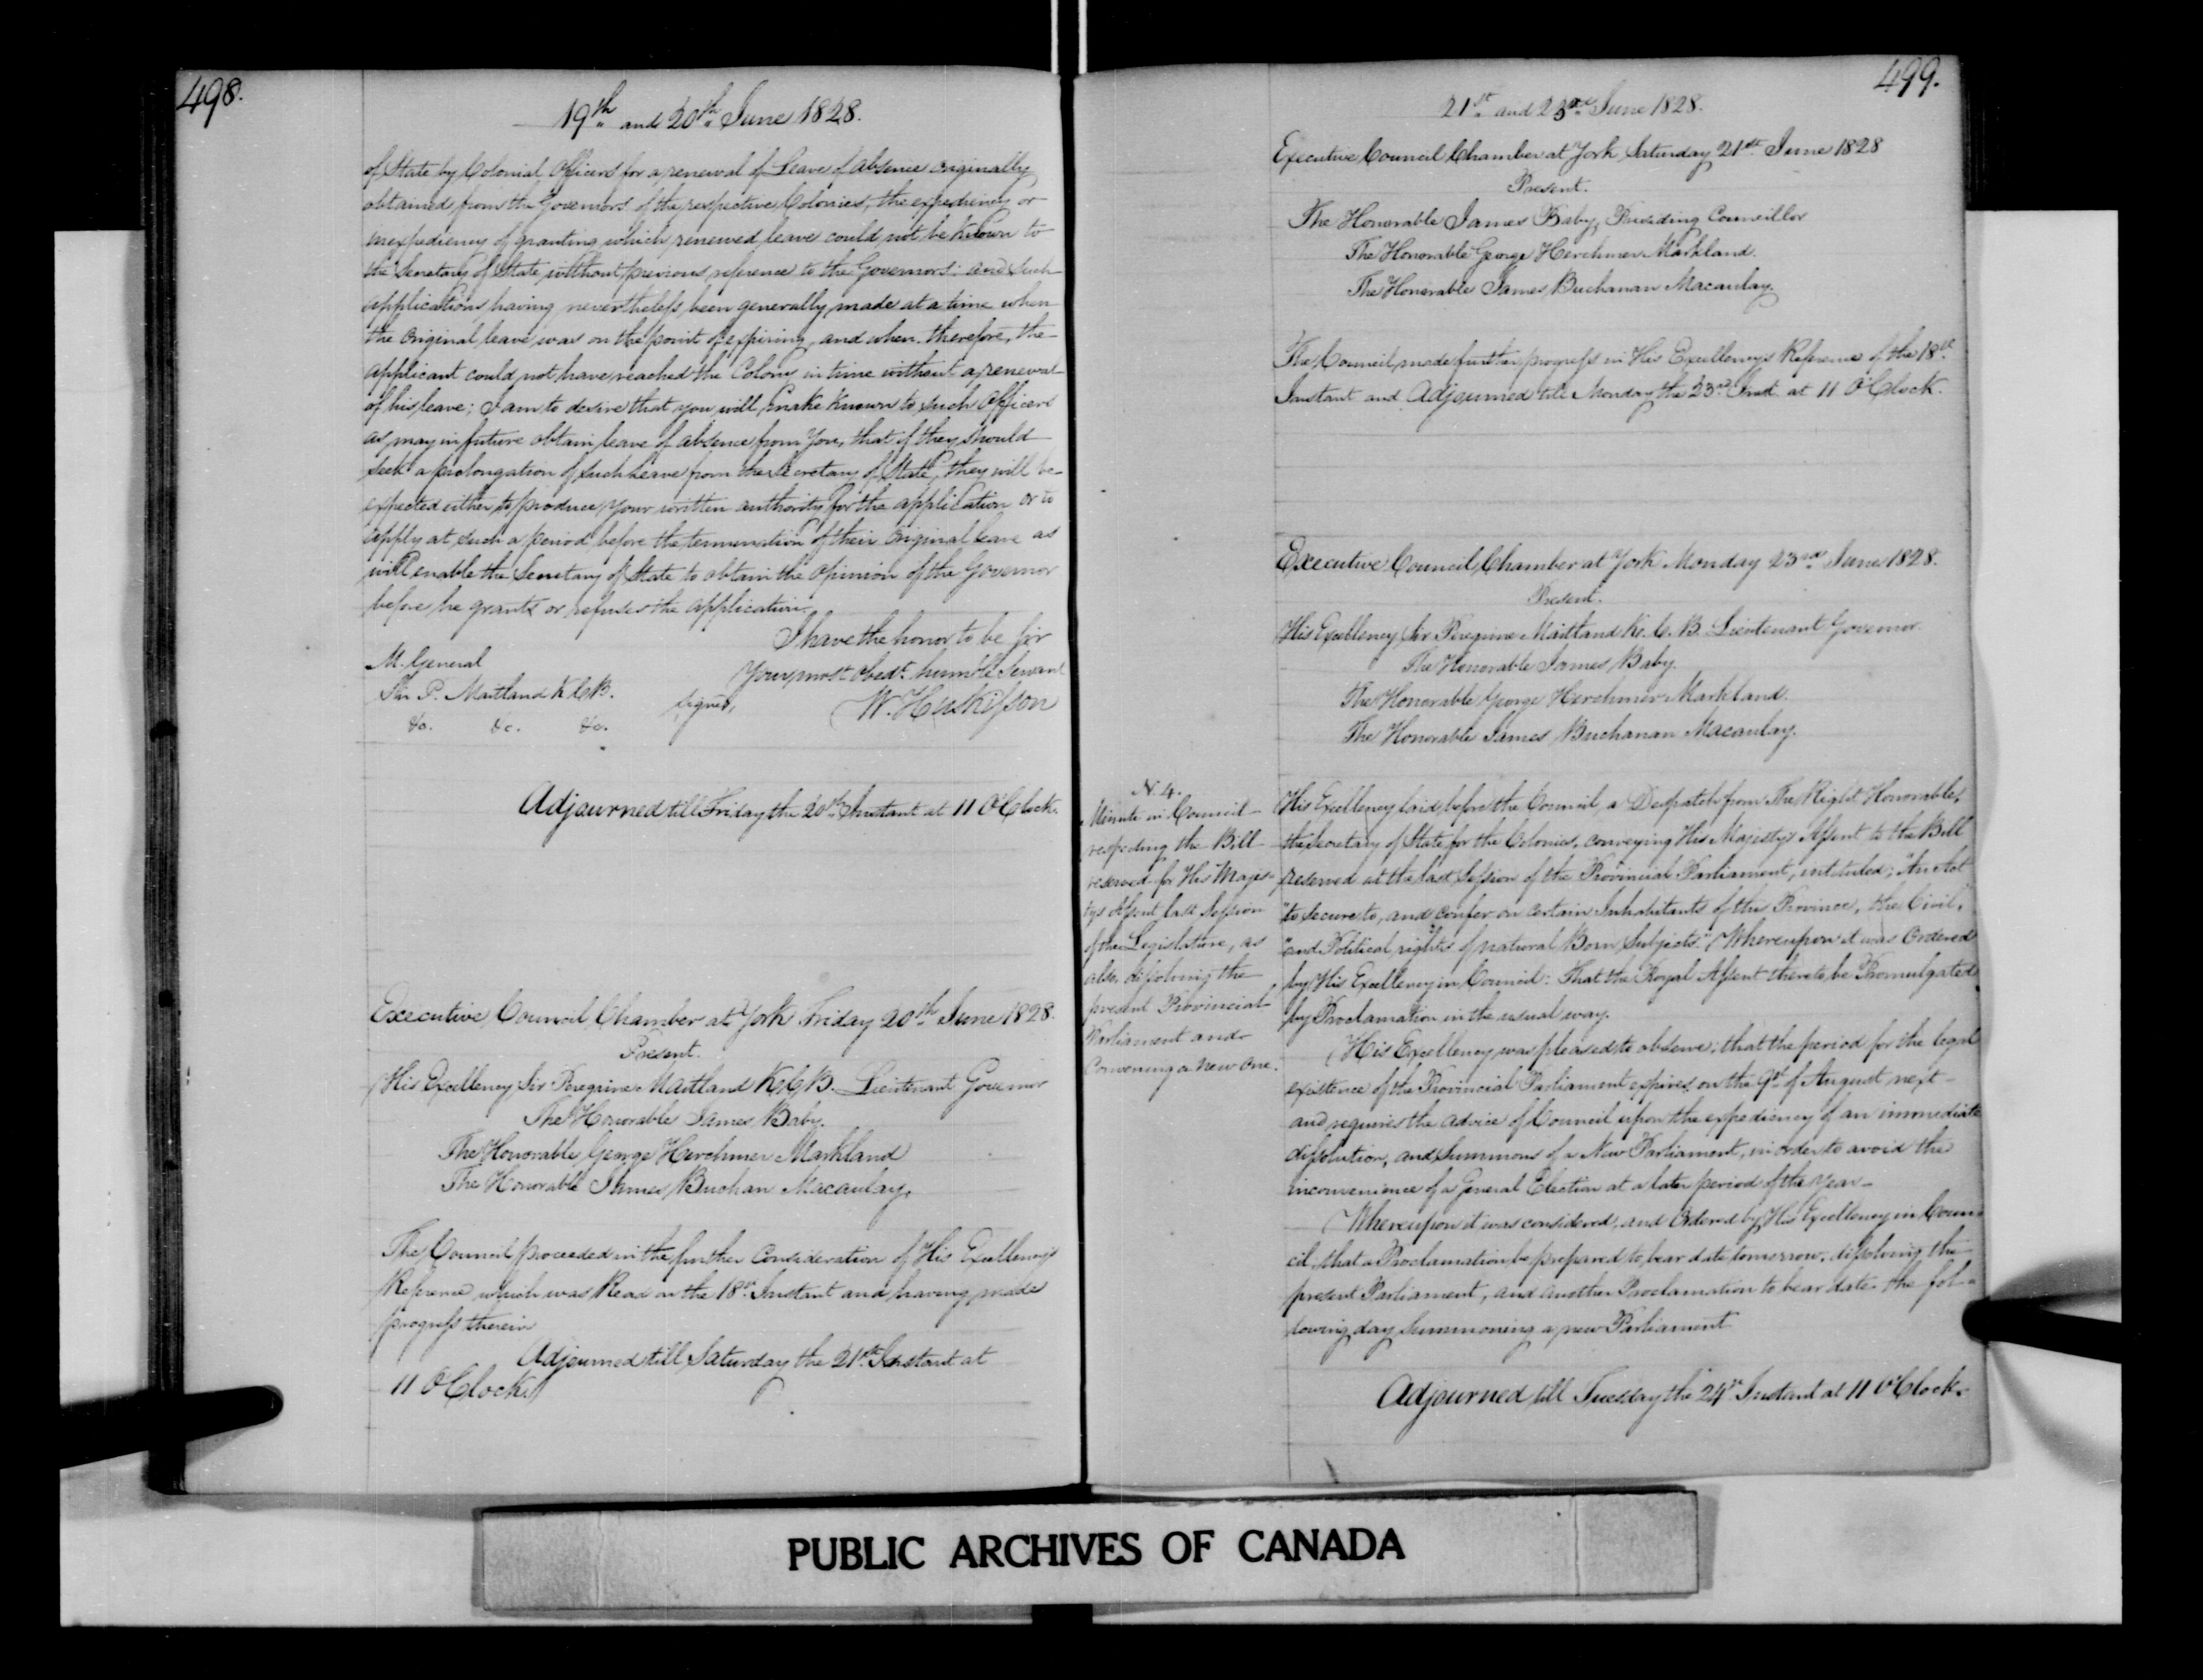 498.
19th and 20th June 1828.
of State by Colonial Officers for a renewal of Leave of Absence originally
obtained from the Governors of the respective Colonies, the expediency or
inexpediency of granting which renewed leave could not be known to
the Secretary of State without previous reference to the Governors: and such
applications having nevertheless been generally made at a time when
the original leave was on the point of expiring, and when therefore, the
applicant could not have reached the Colony in time without a renewal
of his leave; I am to desire that you will make known to such Officers
as may in future obtain leave of absence from You, that if they should
seek a prolongation of such leave from the Secretary of State, they will be
expected either to produce your written authority for the application or to
apply at such a period before the termination of their original leave as
will enable the Secretary of State to obtain the opinion of the Governor
before he grants or refuses the application.
I have the honor to be Sir
Your most obedt. humble Servant
M. General
Sir P. Maitland K.C.B.
&c. &c. &c.
signed, W. Huskisson
Adjourned till Friday the 20th Instant at 11 O'Clock.
Executive Council Chamber at York Friday 20th June 1828.
Present.
His Excellency Sir Peregrine Maitland K.C.B. Lieutenant Governor
The Honorable James Baby.
The Honorable George Herchmer Markland
The Honorable James Buchan Macaulay.
The Council proceeded in the further Consideration of His Excellency's
Reference which was Read on the 18th Instant and having made
progress therein
Adjourned till Saturday the 21st Instant at
11 O'Clock.
499.
21st and 23rd June 1828.
Executive Council Chamber at York Saturday 21st June 1828
Present.
The Honorable James Baby, Presiding Councillor
The Honorable George Herchmer Markland.
The Honorable James Buchanan Macaulay.
The Council made further progress in His Excellency's Reference of the 18th
Instant and Adjourned till Monday the 23rd Inst. at 11 O'Clock.
Executive Council Chamber at York Monday 23rd June 1828.
Present.
His Excellency Sir Peregrine Maitland K.C.B. Lieutenant Governor.
The Honorable James Baby.
The Honorable George Herchmer Markland.
The Honorable James Buchanan Macaulay.
N. 4.
Minute in Council
respecting the Bill
reserved for His Majes-
tys Assent last Session
of the Legislature, as
also, dissolving the
present Provincial
Parliament and
Convening a New One.
His Excellency laid before the Council, a Despatch from The Right Honorable,
the Secretary of State for the Colonies, conveying His Majesty's Assent to the Bill
reserved at the last Session of the Provincial Parliament, intituled; "An Act
"to secure to, and confer on certain Inhabitants of this Province, the Civil,
"and Political rights of natural Born Subjects." Whereupon it was Ordered
by His Excellency in Council: That the Royal Assent thereto be Promulgated
by Proclamation in the usual way.
His Excellency was pleased to observe; that the period for the legal
existence of the Provincial Parliament expires on the 9th of August next
and requires the advice of Council upon the expediency of an immediate
dissolution, and Summons of a New Parliament, in order to avoid the
inconvenience of a General Election at a later period of the year
Whereupon it was considered, and Ordered by His Excellency in Coun-
cil, that a Proclamation be prepared to bear date tomorrow, dissolving the
present Parliament, and another Proclamation to bear date the fol-
lowing day summoning a new Parliament
Adjourned till Tuesday the 24th Instant at 11 O'Clock.
PUBLIC ARCHIVES OF CANADA